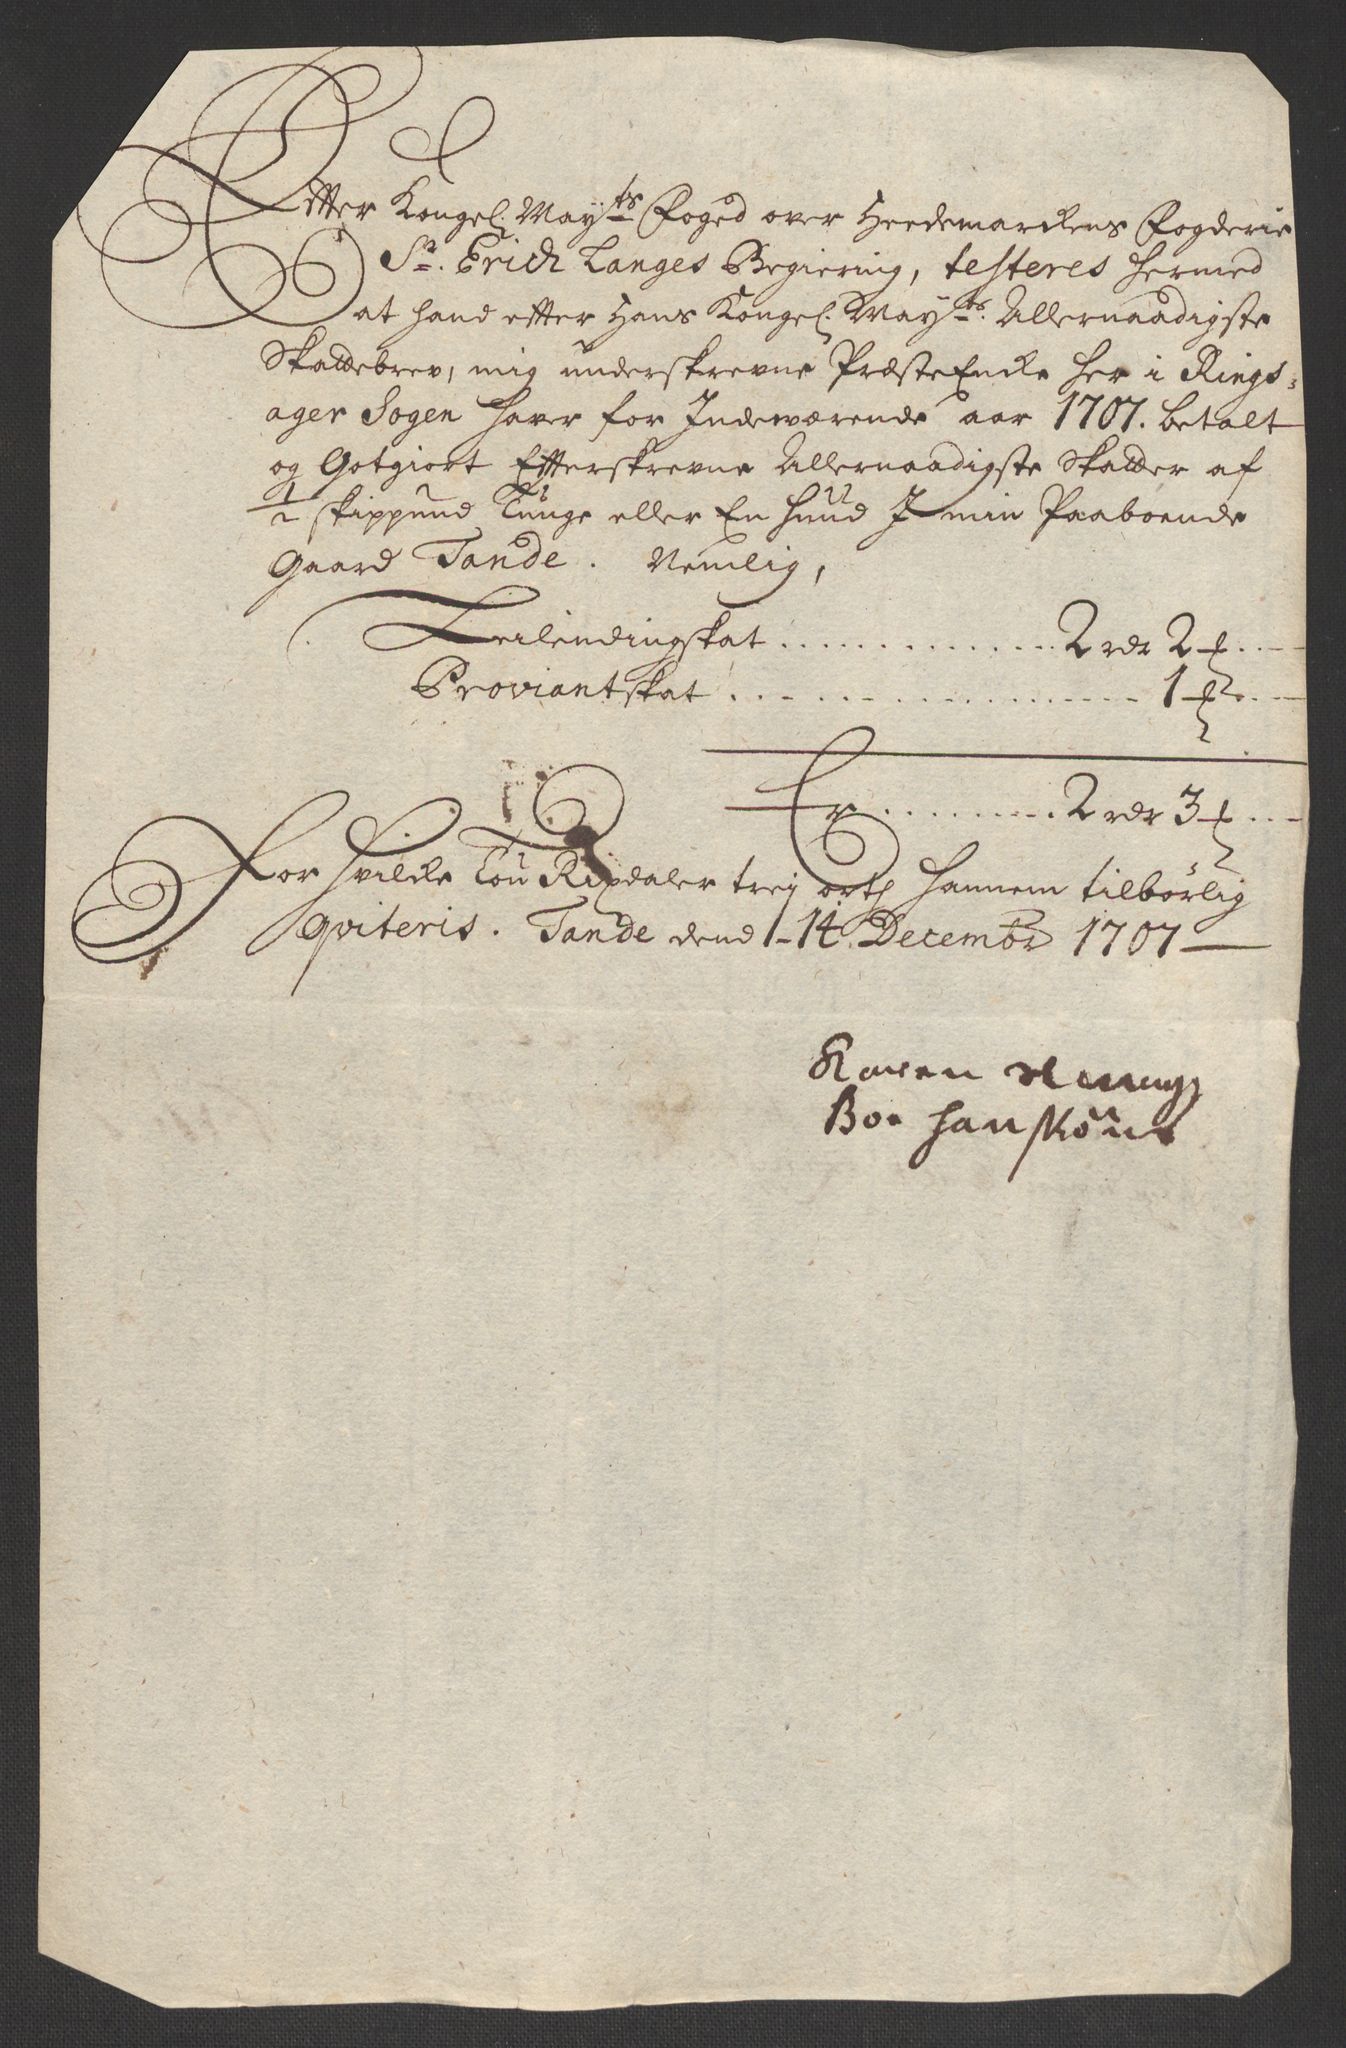 Efter Kongel. Mayts Foged over Heedemarckens Fogderie
Sr. Erich Langes Begiering, testeres hermed
at hand efter Hans Kongel. Mayts. Allernaadigste
Skattebrev, mig underskrevne PræsteEncke her i Rings-
ager Sogen haver for Indeværende aar 1707. betalt
og Gotgiort Efterskrevne Allernaadigste Skatter af
1/2 skippund Tunge eller En huud I min Paaboende
Gaard Tande. Nemlig,
Leilendingskat ............ 2 rdr 2 ß
Proviantskat ............ 1 ß
Er ........ 2 rdr 3 ß
For hvilcke Tou Rixdaler treij orth hannem tilbørlig
qviteris. Tande dend 14. Decembr 1707
Karen
Boe